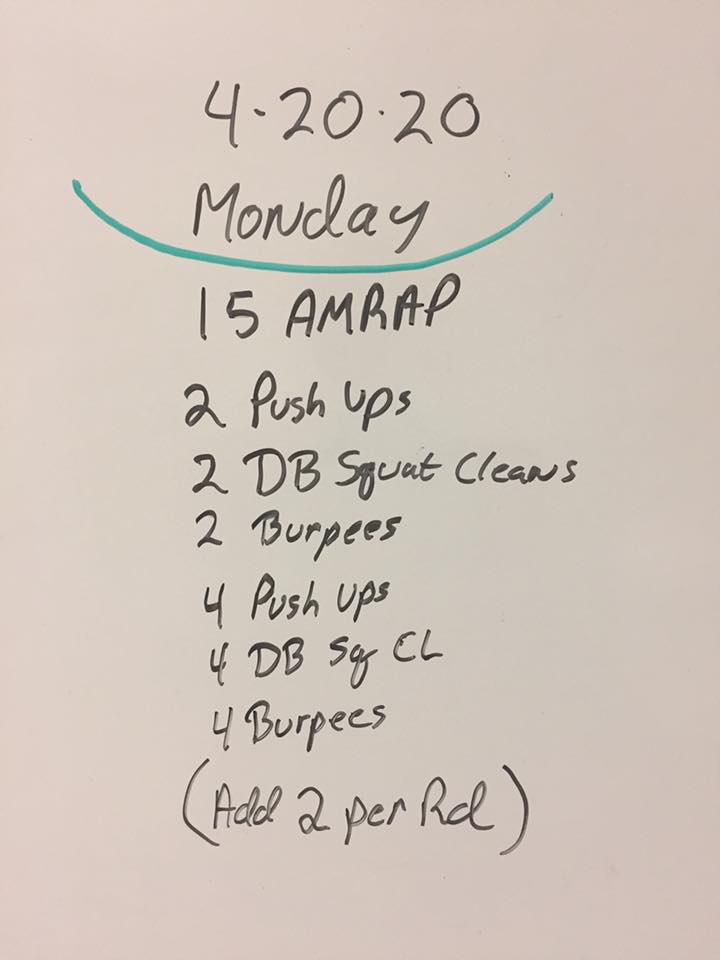 4·20·20
Monday
15 AMRAP
2 Push Ups
2 DB Squat Cleans
2 Burpees
4 Push Ups
4 DB Sq CL
4 Burpees
(Add 2 per Rd)